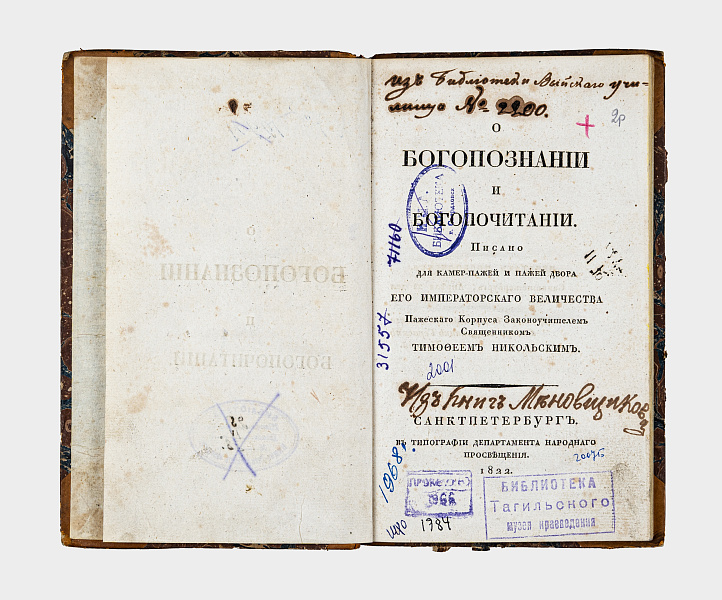 изъ Библіотеки Выйскаго учи-
лища № 2200.
2р
О
БОГОПОЗНАНІИ
И
БОГОПОЧИТАНІИ.
Писано
ДЛЯ КАМЕР-ПАЖЕЙ И ПАЖЕЙ ДВОРА
ЕГО ИМПЕРАТОРСКАГО ВЕЛИЧЕСТВА
Пажескаго Корпуса Законоучителемъ
Священникомъ
ТИМОѲЕЕМЪ НИКОЛЬСКИМЪ.
БИБЛИОТЕКА
71160
31557
2001
Изъ книгъ Мѣновщикова
САНКТПЕТЕРБУРГЪ.
ВЪ ТИПОГРАФІИ ДЕПАРТАМЕНТА НАРОДНАГО
ПРОСВѢЩЕНІЯ.
1822.
20075
1968г.
1966
1784
БИБЛИОТЕКА
Тагильского
музея краеведения